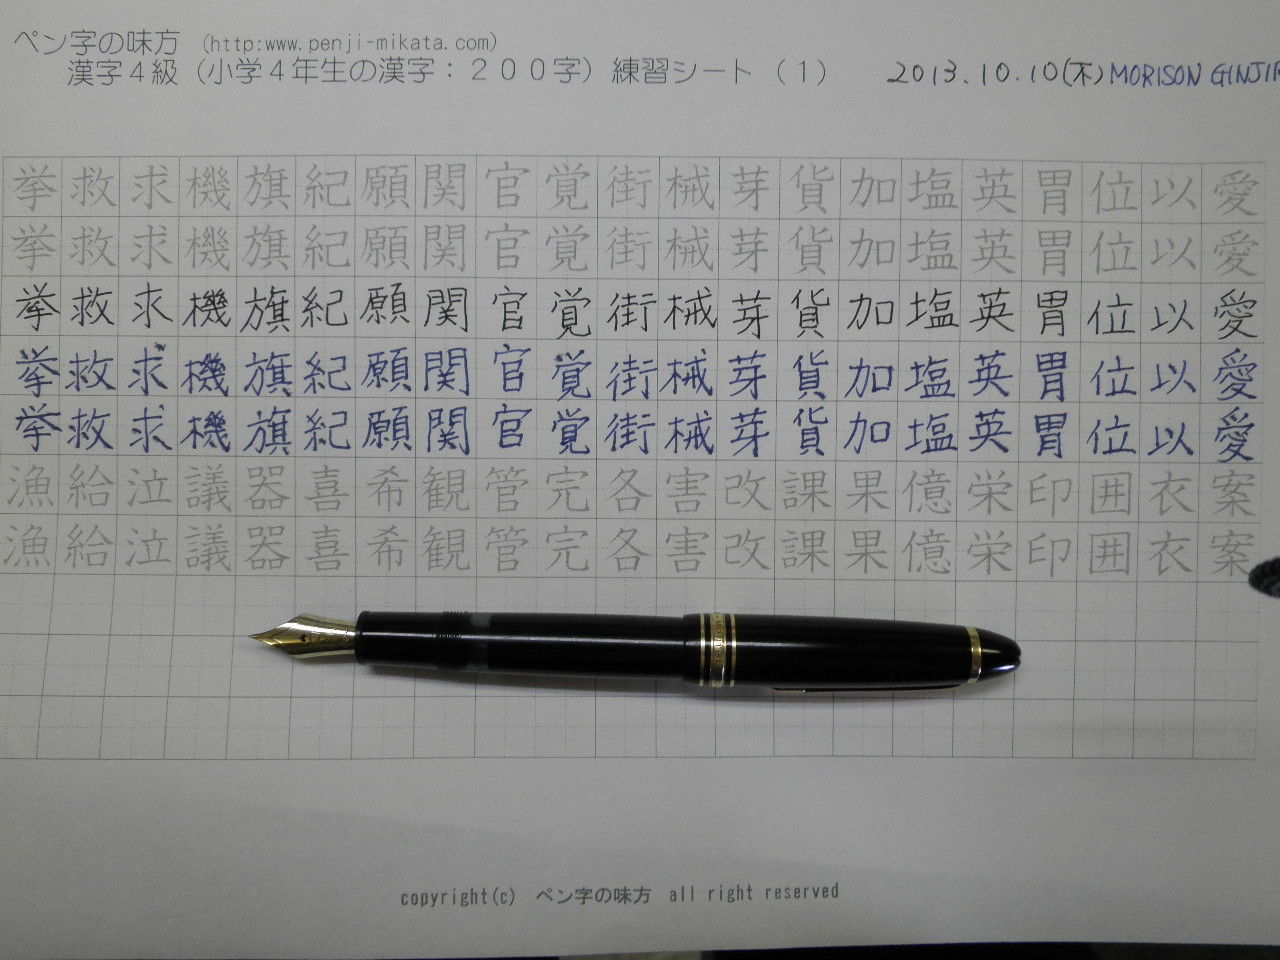 ペン字の味方 (http:www.penji-mikata.com)
漢字４級（小学４年生の漢字：２００字）練習シート（１） 2013.10.10(木) MORISON GINJIR
挙救求機旗紀願関官覚街械芽貨加塩英胃位以愛
挙救求機旗紀願関官覚街械芽貨加塩英胃位以愛
挙救求機旗紀願関官覚街械芽貨加塩英胃位以愛
挙救求機旗紀願関官覚街械芽貨加塩英胃位以愛
挙救求機旗紀願関官覚街械芽貨加塩英胃位以愛
漁給泣議器喜希観管完各害改課果億栄印囲衣案
漁給泣議器喜希観管完各害改課果億栄印囲衣案
copyright(c) ペン字の味方 all right reserved